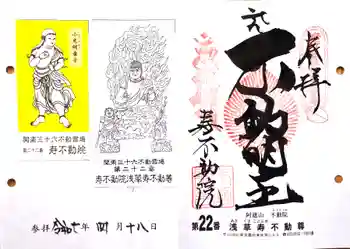 関東三十六不動霊場
第二十二番 寿不動院
関東三十六不動霊場
第二十二番
寿不動院浅草寿不動尊
参拝 令和七年 四月十八日
奉拝
不動明王
寿不動院
第22番
阿遮山 不動院
浅草寿不動尊